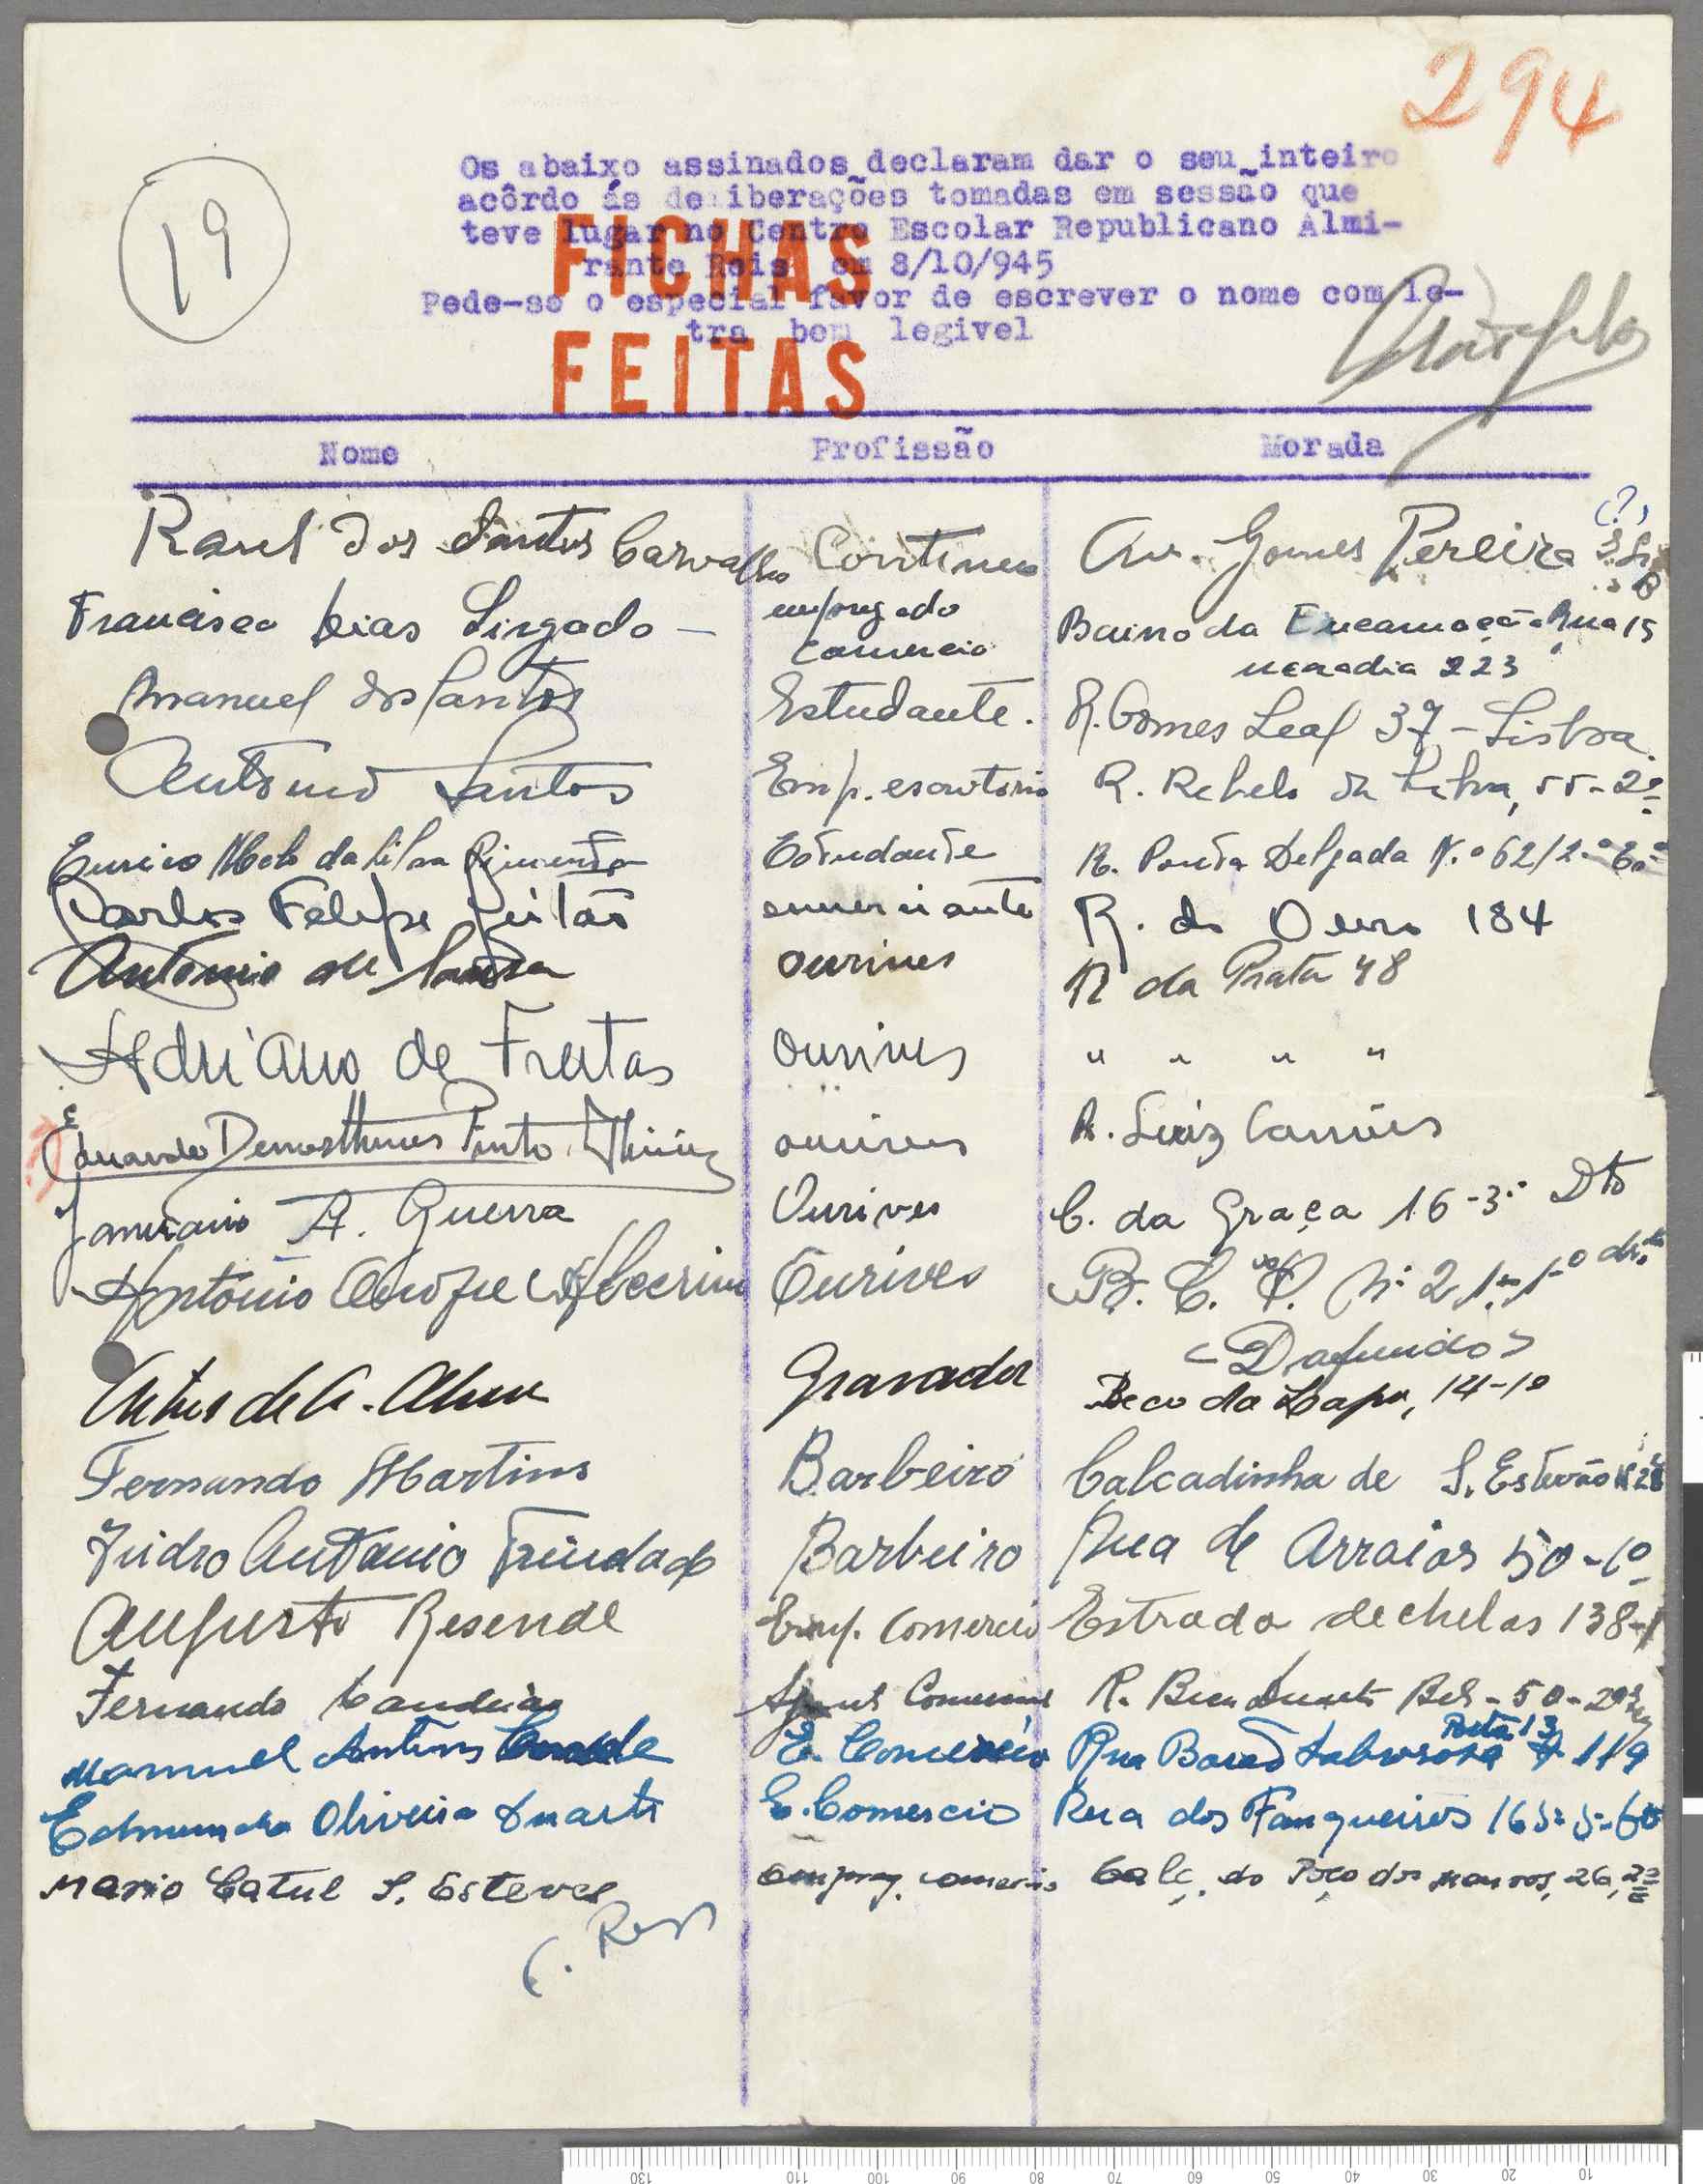 294
19
Os abaixo assinados declaram dar o seu inteiro
acôrdo ás deliberações tomadas em sessão que
teve lugar no Centro Escolar Republicano Almi-
rante Reis em 8/10/945
Pede-se o especial favor de escrever o nome com le-
tra bem legivel
FICHAS
FEITAS
Nome Profissão Morada
Raul dos Santos Carvalho Continuo Av. Gomes Pereira (?)
Francisco Dias Lingado - empregado comercio Bairro da Encarnação Rua 15
moradia 223
Manuel dos Santos Estudante. R. Gomes Leal 37 - Lisboa
António Santos Emp. escritorio R. Rebelo da Silva, 55-2º
Eurico Melo da Silva Pimenta Estudante R. Ponta Delgada N.º 62/2.º
Carlos Felipe Leitão comerciante R. do Ouro 184
Antonio de Sousa ourives R da Prata 48
Adriano de Freitas ourives " " " "
Eduardo Demosthenes Pinto ourives R. Luiz Camões
Januario A. Guerra Ourives C. da Graça 16-3.º Dto
António Ourives B. C. P. Nº 2
<Dafundo>
de A. Gravador Beco da Lapa, 14-1º
Fernando Martins Barbeiro Calcadinha de S. Estevão
Izidro Antonio Trindade Barbeiro Rua de Arroios 50-1º
Augusto Resende Emp. Comercio Estrada de chelas 138-1
Fernando Candeias Comercial R.
Manuel Antunes E. Comercio Rua Barão Sabrosa Porta 13 119
Edmundo Oliveira Duarte E. Comercio Rua dos Fanqueiros 165-5-
Mario Catul S. Esteves empreg. comercio Calç. do Poço dos Mouros, 26, 2º